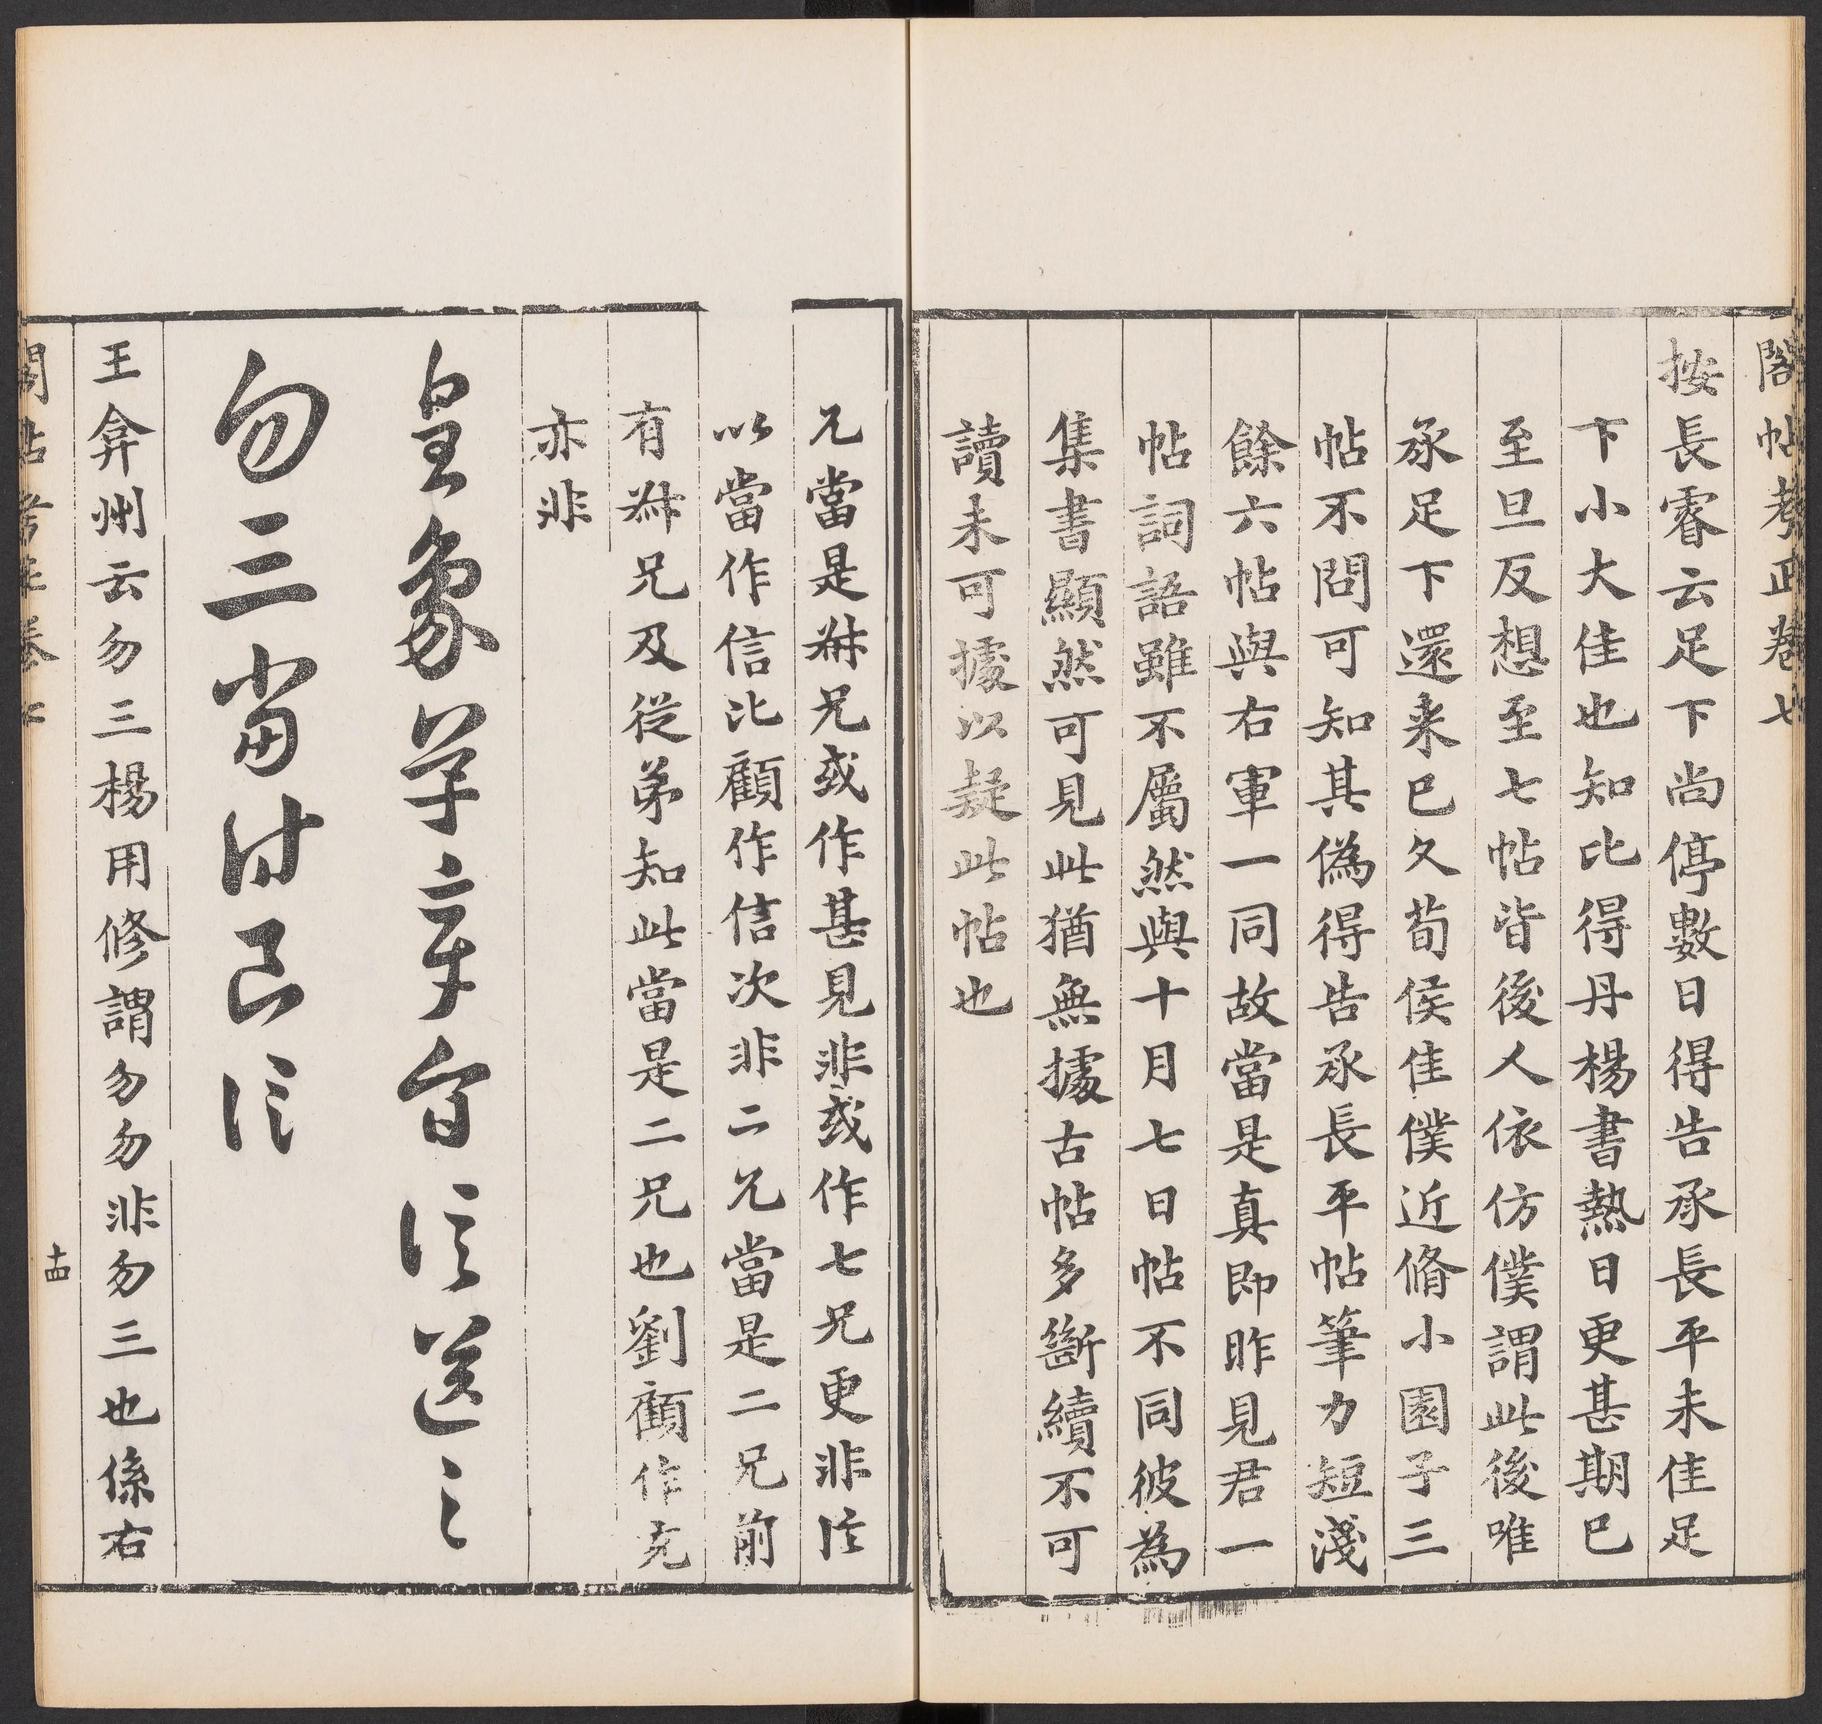 閣帖考正卷七
按長睿云足下尚停數日得告承長平未佳足
下小大佳也知比得丹楊書熱日更甚期已
至旦反想至七帖皆後人依仿僕謂此後唯
承足下還来已久荀侯佳僕近脩小園子三
帖不問可知其偽得告承長平帖筆力短淺
餘六帖與右軍一同故當是真即昨見君一
帖詞語雖不屬然與十月七日帖不同彼為
集書顯然可見此猶無據古帖多斷續不可
讀未可據以疑此帖也
兄當是栟兄或作甚見非或作七兄更非信
以當作信比顧作信次非二兄當是二兄前
有栟兄及從弟知此當是二兄也劉顧作克
亦非
皇象草章旨信送之
勿三當付良信
王弇州云勿三楊用修謂勿勿非勿三也係右
十四